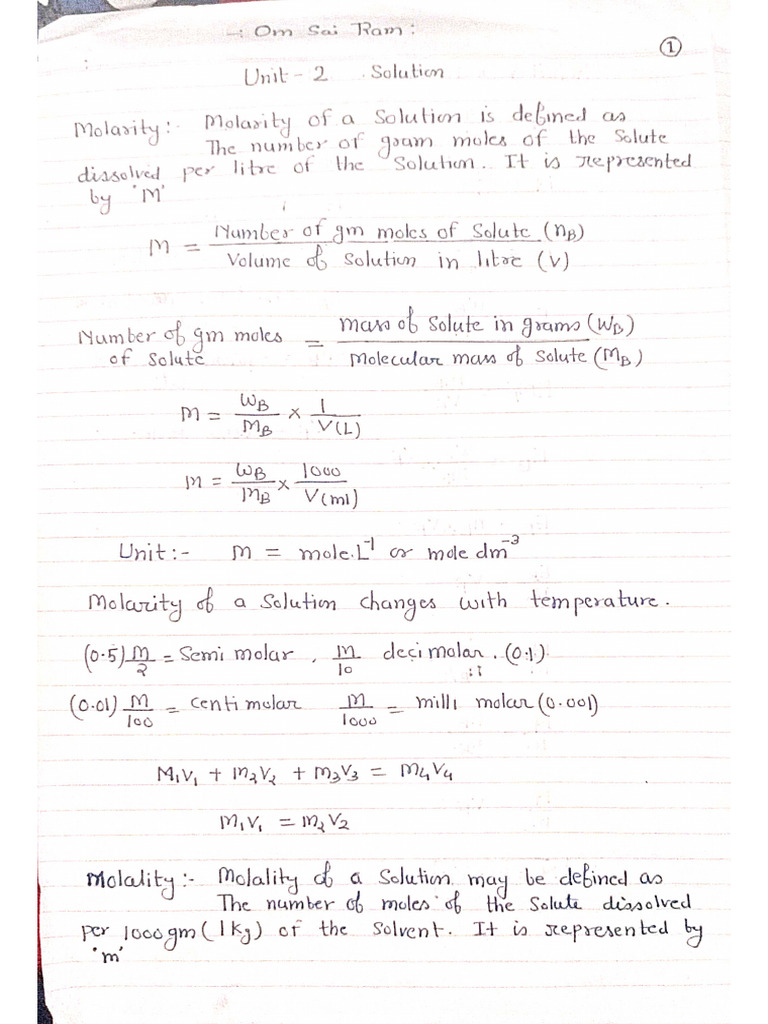 -: Om Sai Ram :
①
Unit - 2 Solution
Molarity :- Molarity of a Solution is defined as
The number of gram moles of the Solute
dissolved per litre of the Solution. It is represented
by 'M'
M = Number of gm moles of Solute (nB) / Volume of Solution in litre (v)
Number of gm moles of Solute = mass of Solute in grams (WB) / Molecular mass of Solute (MB)
M = WB/MB × 1/V(L)
M = WB/MB × 1000/V(ml)
Unit :- M = mole.L⁻¹ or mole dm⁻³
Molarity of a Solution changes with temperature.
(0.5) M/2 = Semi molar , M/10 deci molar . (0.1)
(0.01) M/100 = centi molar M/1000 = milli molar (0.001)
M₁V₁ + M₂V₂ + M₃V₃ = M₄V₄
M₁V₁ = M₂V₂
Molality :- Molality of a Solution may be defined as
The number of moles of the Solute dissolved
per 1000 gm (1 kg) of the Solvent. It is represented by
'm'